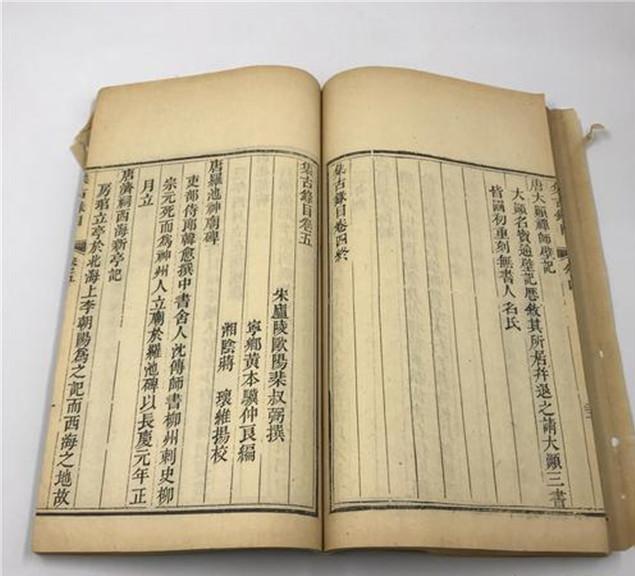 集古錄目
唐大顛禪師壁記
大顛名寶通壁記歷敘其所居幷退之請大顛三書
皆國初重刻無書人名氏
集古錄目卷四終
集古錄目卷五
宋廬陵歐陽棐叔弼撰
寧鄉黃本驥仲良編
湘陰蔣 瓌維揚校
唐羅池神廟碑
吏部侍郎韓愈撰中書舍人沈傳師書柳州刺史柳
宗元死而爲神州人立廟於羅池碑以長慶元年正
月立
唐濟祠西海新亭記
房琯立亭於北海上李朝陽爲之記而西海之地故
集古錄目 卷五